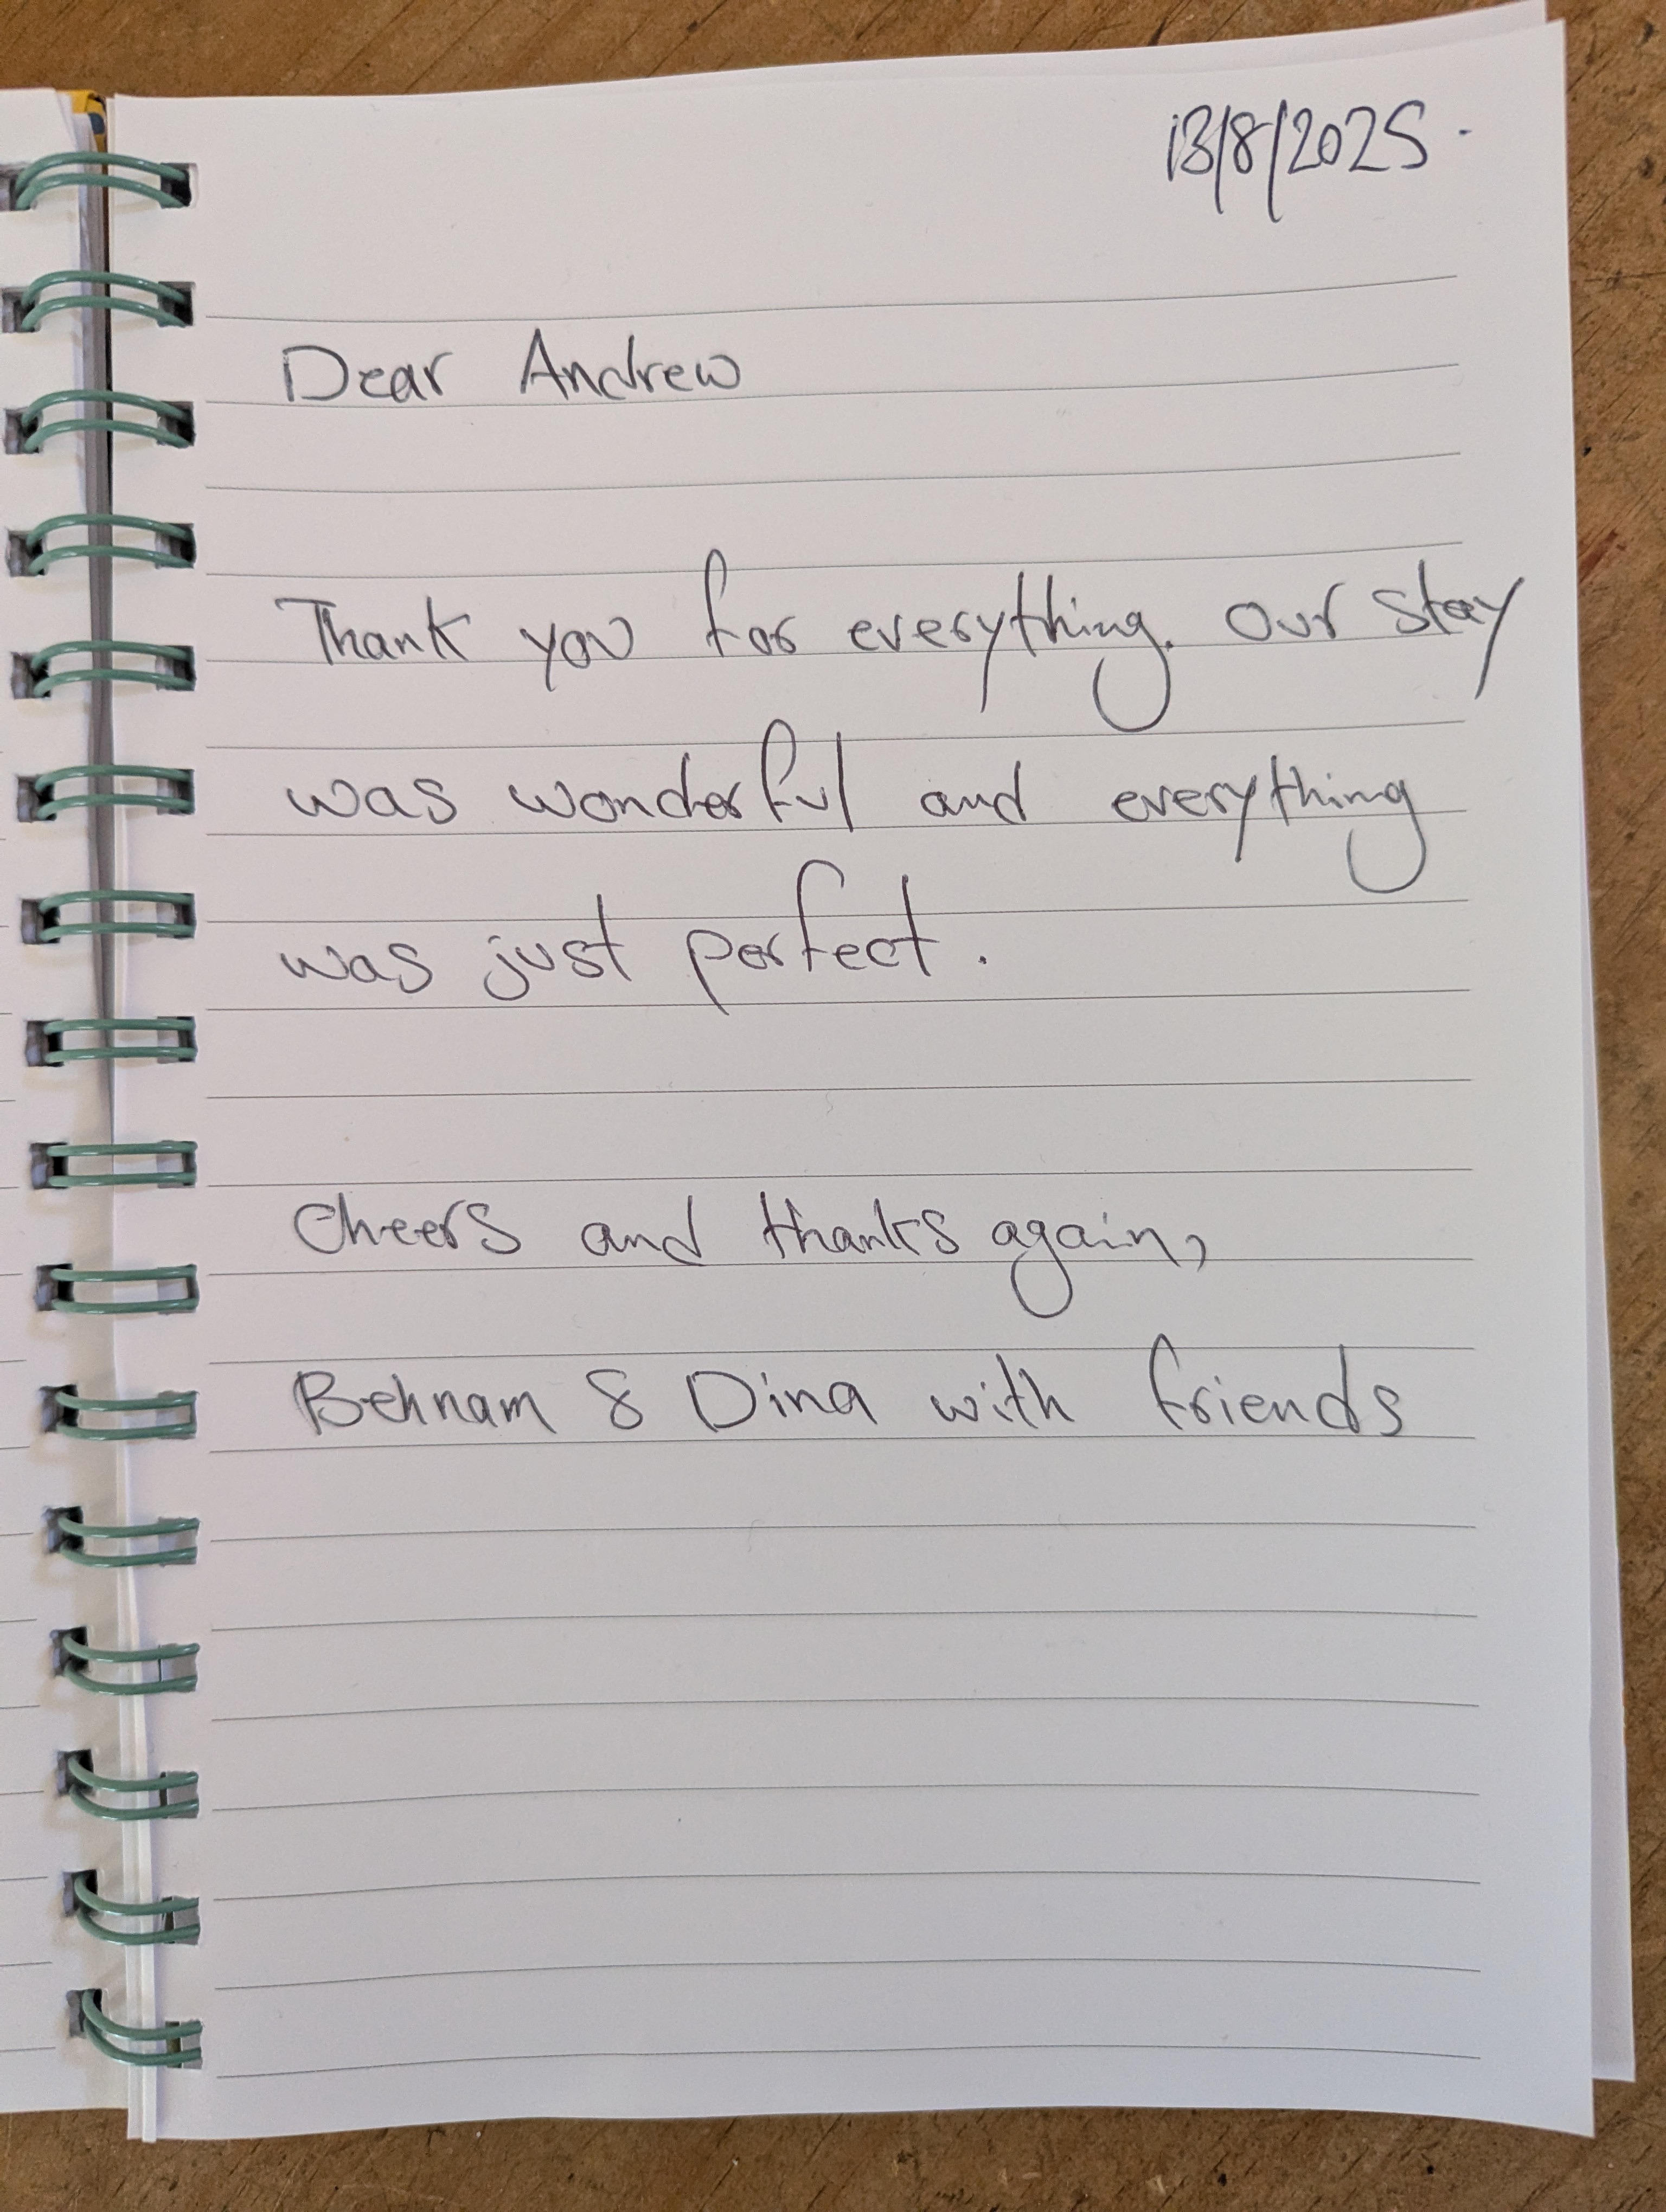 13/8/2025.
Dear Andrew
Thank you for everything. Our stay
was wonderful and everything
was just perfect.
Cheers and thanks again,
Behnam & Dina with friends